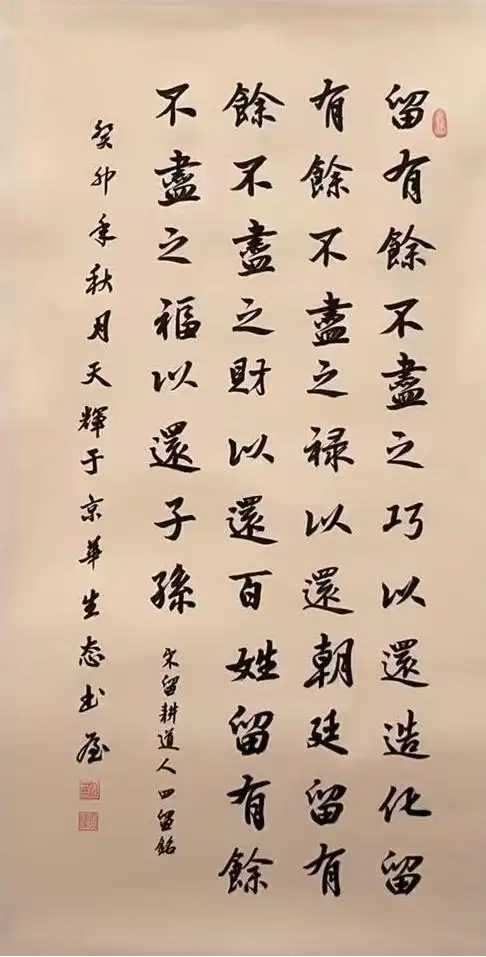 留有餘不盡之巧以還造化留
有餘不盡之禄以還朝廷留有
餘不盡之財以還百姓留有餘
不盡之福以還子孫
宋留耕道人四留銘
癸卯年秋月天輝于京華生态书屋